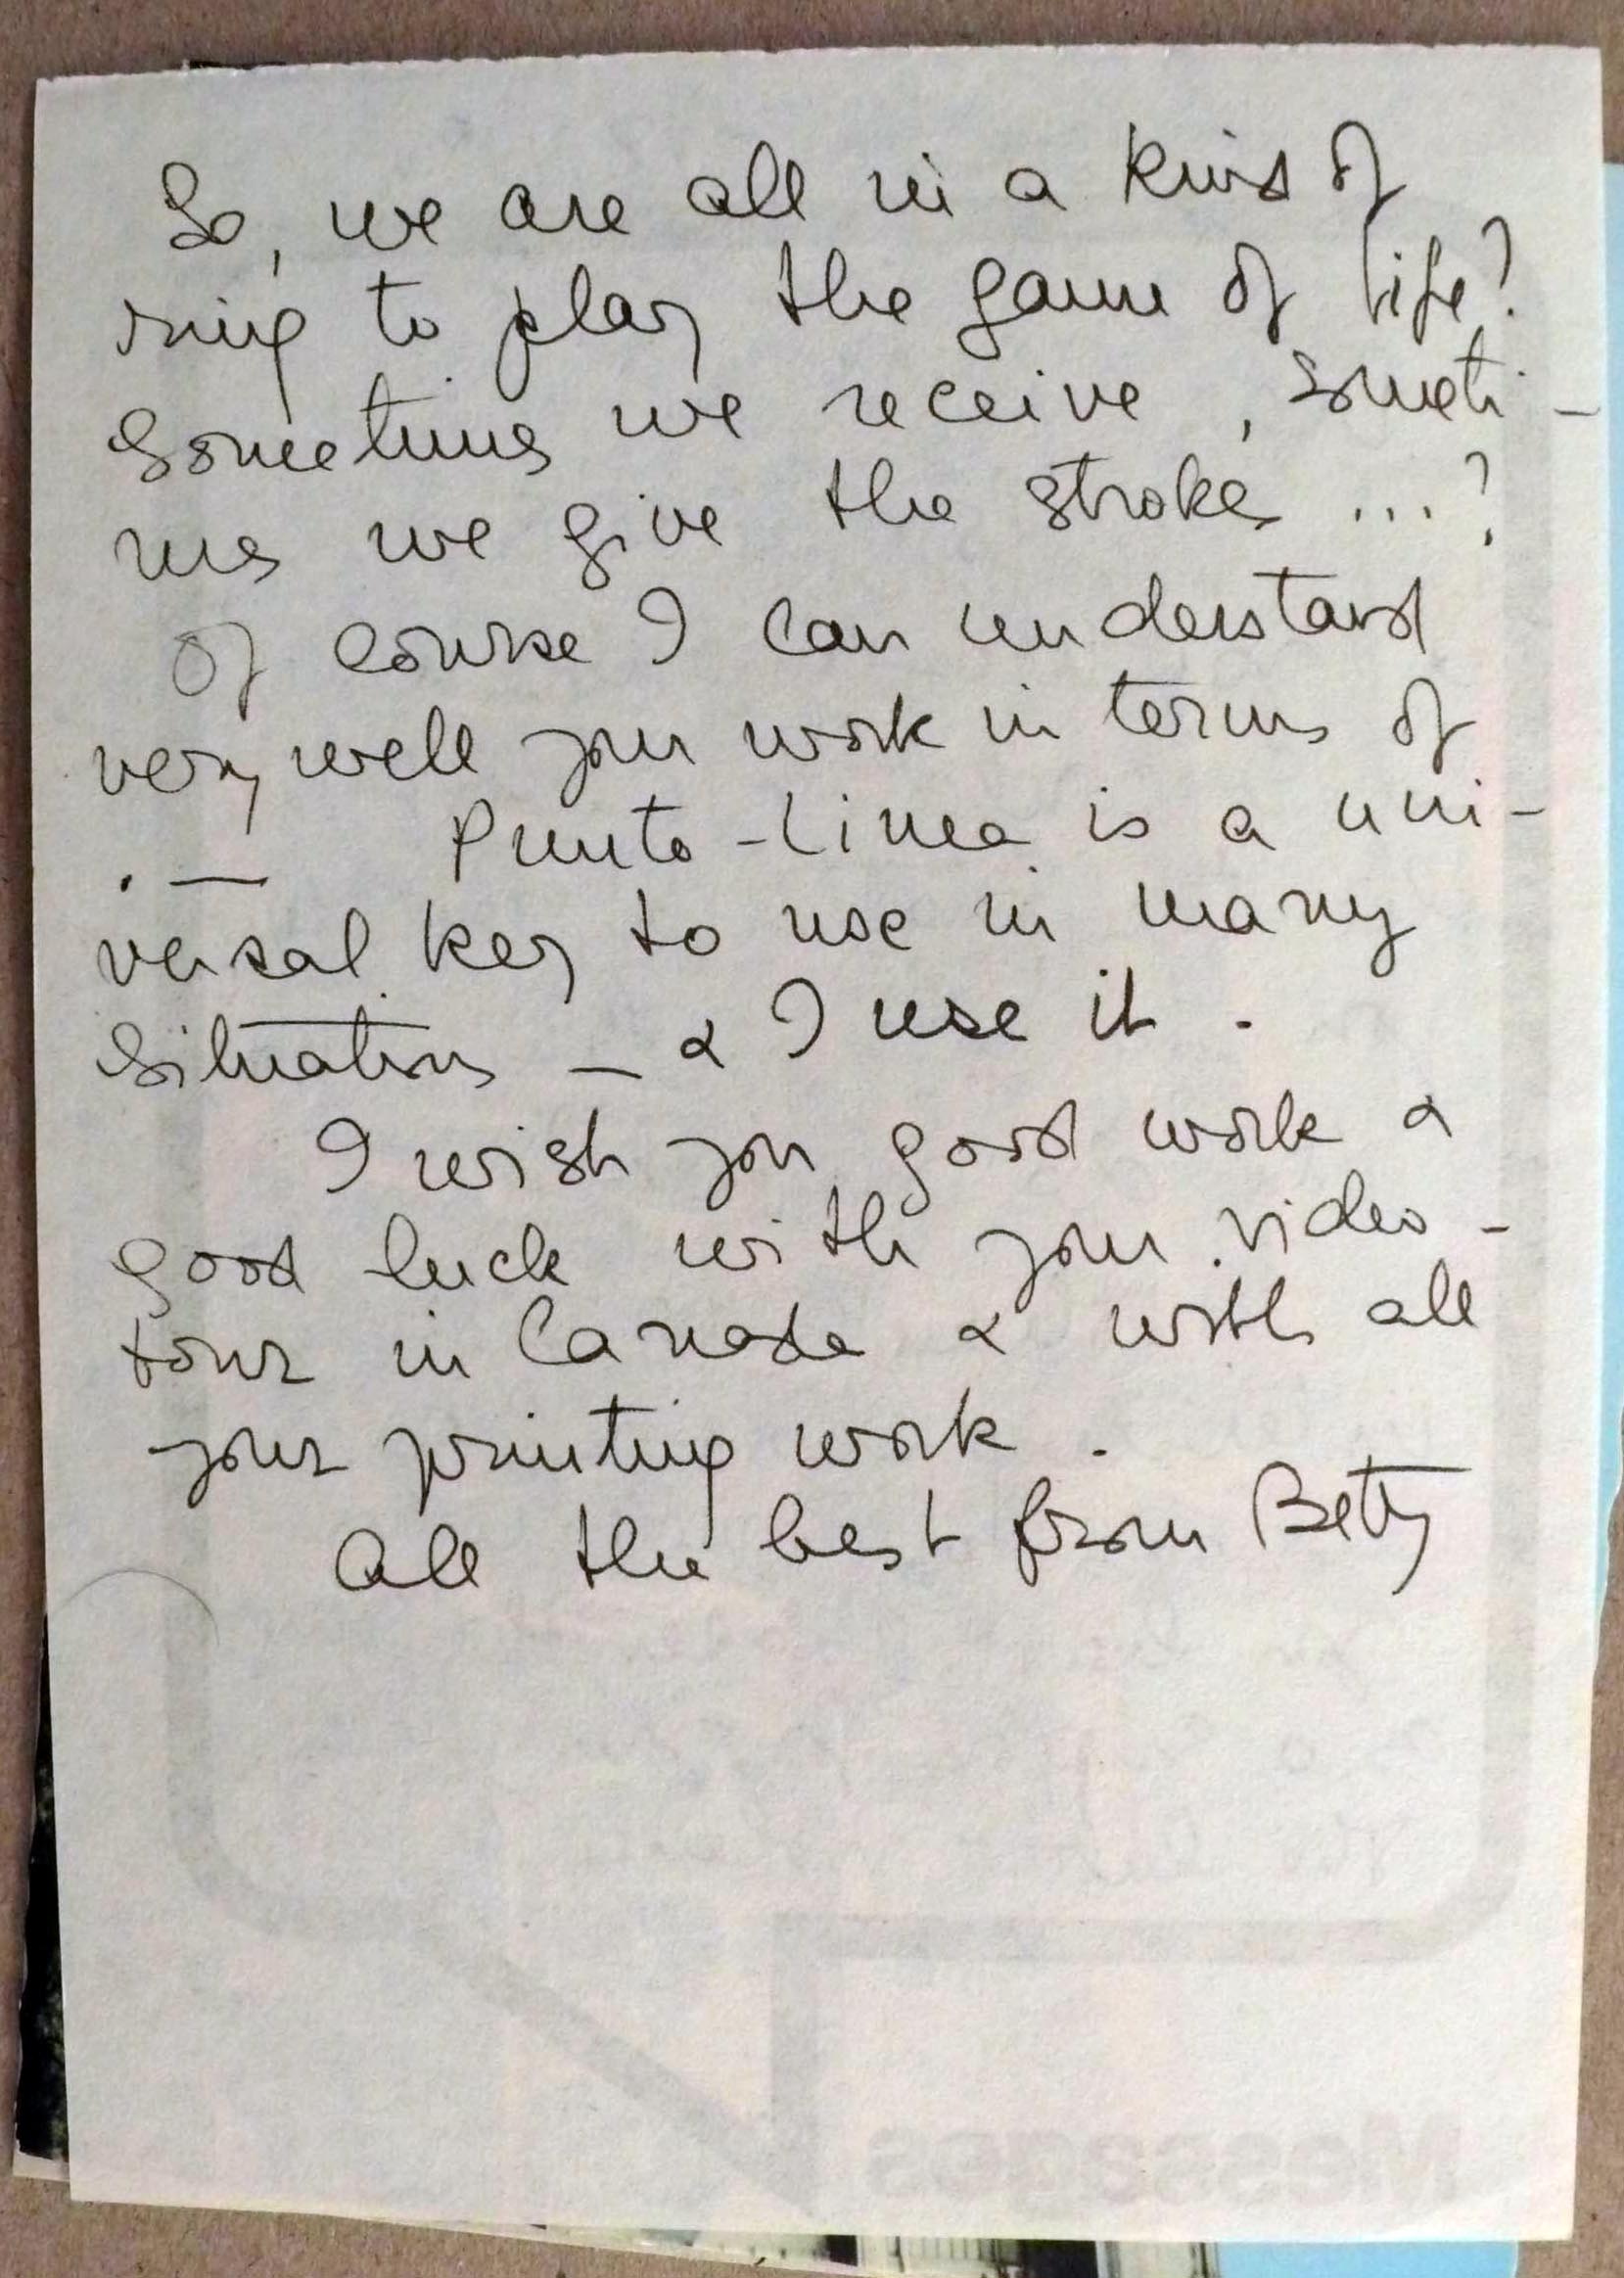 So, we are all in a kind of
ring to play the game of life?
Sometimes we receive, someti-
mes we give the stroke ...?
Of course I can understand
very well your work in terms of
. — Punto-Linea is a uni-
versal key to use in many
situations — & I use it.
I wish you good work &
good luck with your video-
tour in Canada & with all
your printing work.
All the best from Betty
Messages